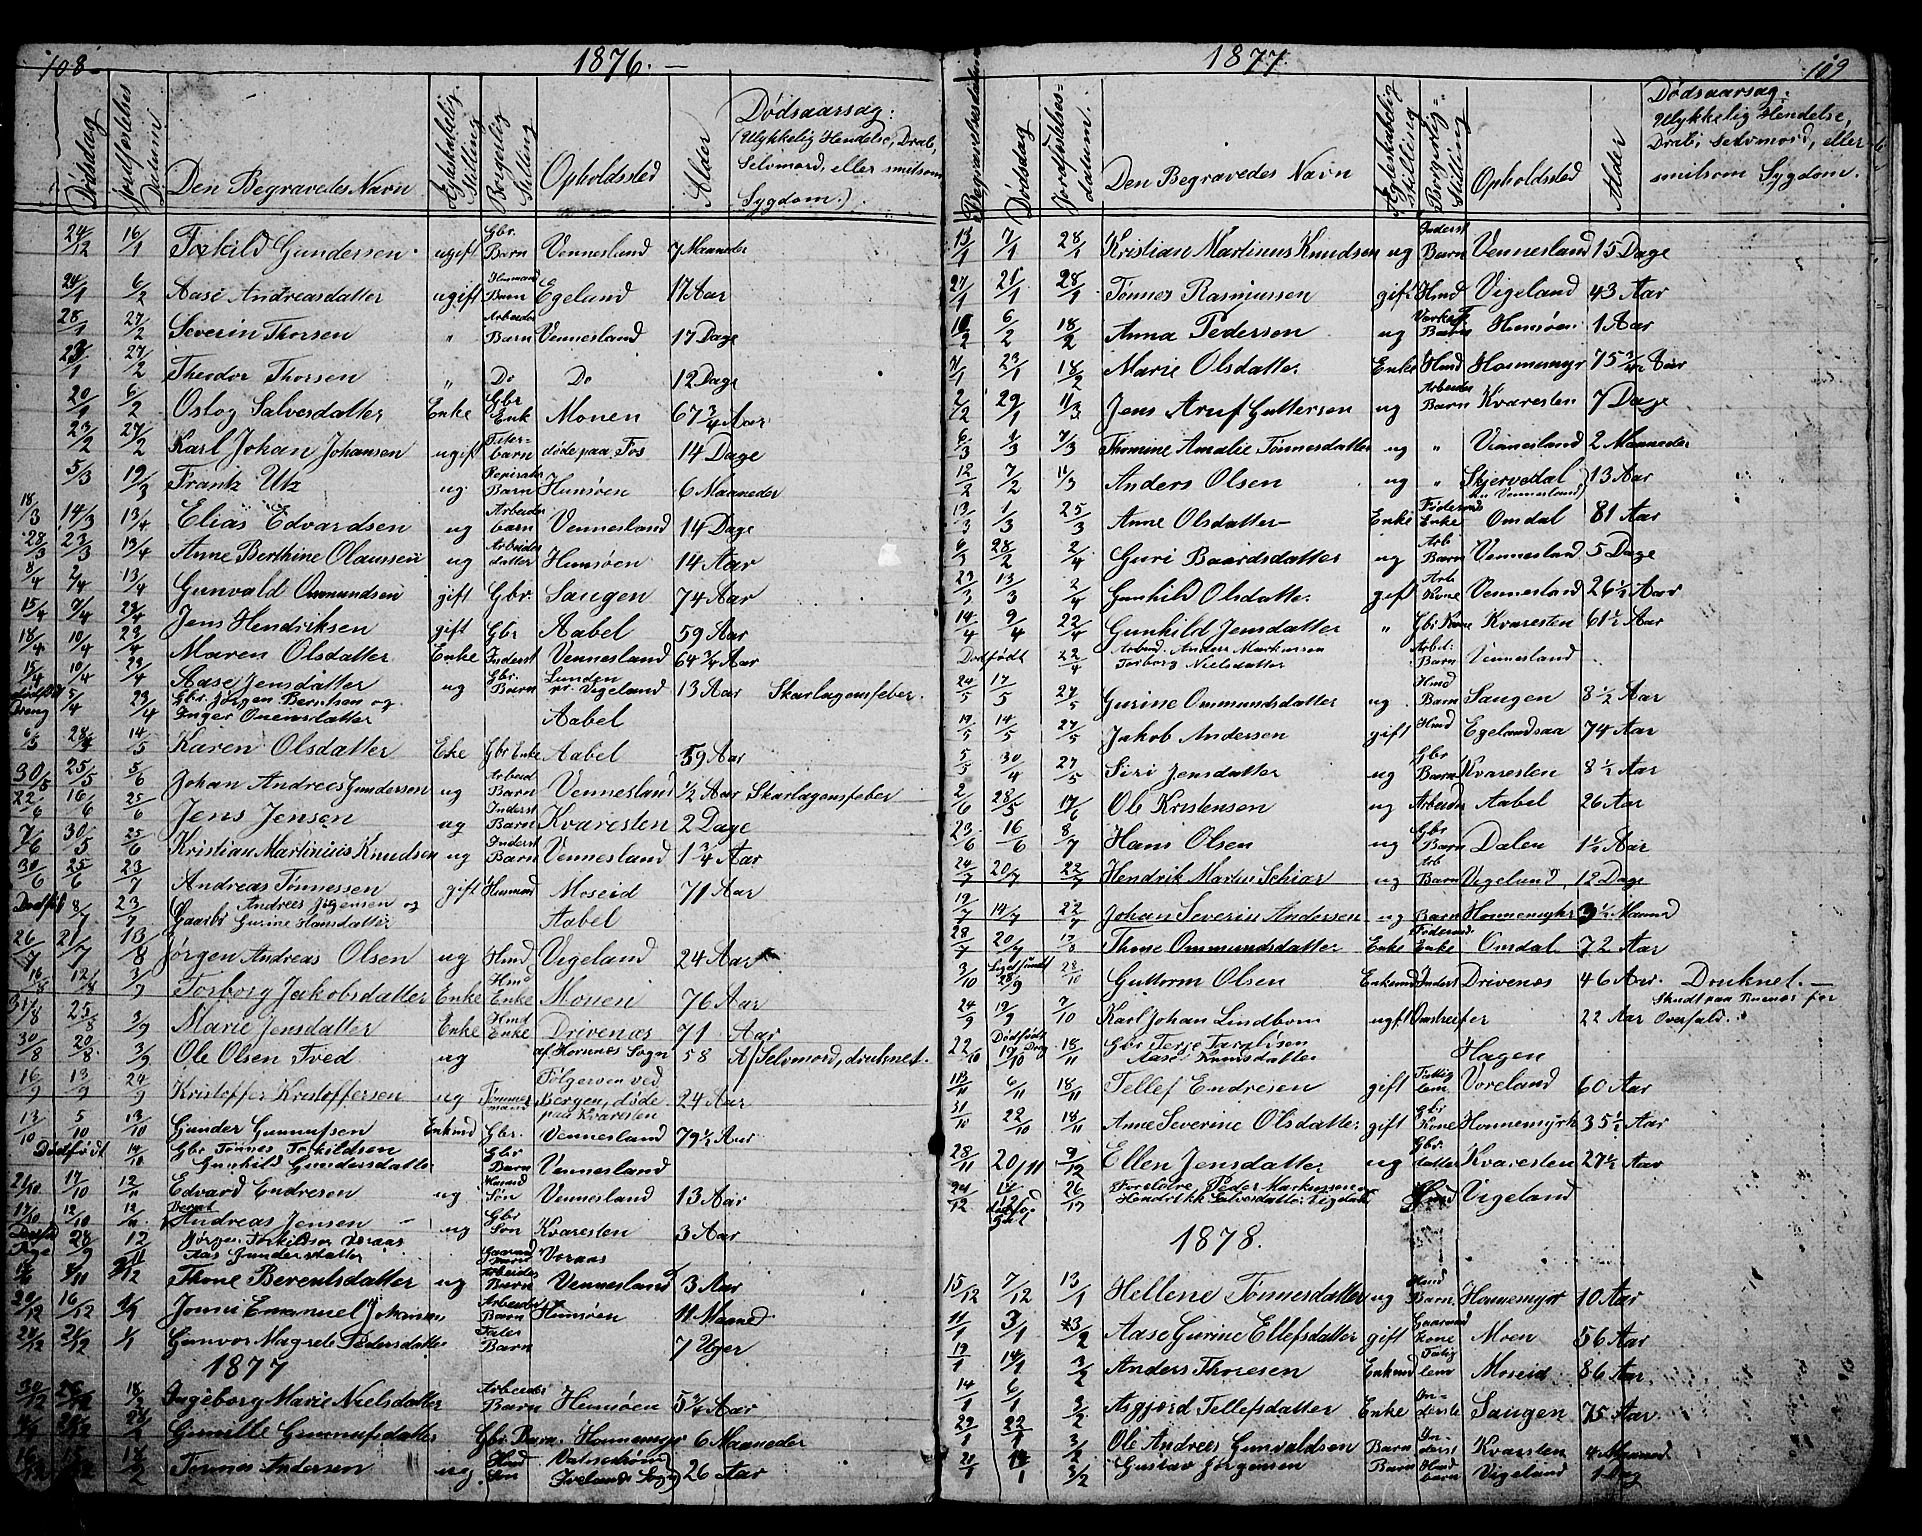 108
1876. —
Dødsdag
Jordfæstelses Datum
Den Begravedes Navn
Egteskabelig Stilling
Borgerlig Stilling
Opholdssted
Alder
Dødsaarsag:
(Ulykkelig Hendelse, Drab,
Selvmord, eller smitsom
Sygdom.)
24/12 16/1 Torkild Gundersen ugift Gbr. Barn Vennesland 7 Maaneder
24/1 6/2 Aase Andreasdatter ugift Husmand Barn Egeland 17 Aar
28/1 27/2 Severin Thorsen " Arbeider Barn Vennesland 17 Dage
23/1 27/2 Theodor Thorsen " Do Do 12 Dage
6/2 Oslog Salvesdatter Enke Gbr Enk Monen 67 3/4 Aar
23/2 27/2 Karl Johan Johansen ugift barn døde paa Fos 14 Dage
5/3 19/3 Frantz Utz ug. Barn Hunsøen 6 Maaneder
18/3 14/3 13/4 Elias Edvardsen ug Arbeider barn Vennesland 14 Dage
28/3 23/3 13/4 Anne Berthine Olaussen ug Arbeider datter Hunsøen 14 Aar
8/4 2/4 13/4 Gunvald Ommundsen gift Gbr. Saugen 74 Aar
15/4 7/4 23/4 Jens Hendriksen gift Gbr Aabel 59 Aar
18/4 10/4 23/4 Maren Olsdatter Enke Inderst Vennesland 64 3/4 Aar
15/4 10/4 23/4 Aase Jensdatter ug Gbr. Barn Lunden nr. Vigeland 13 Aar Skarlagensfeber.
dødfødt Dreng 5/4 23/4 Gbr. Jørgen Berntsen og
Inger Onensdatter Aabel
6/5 28/4 14/5 Karen Olsdatter Enke Gbr Enke Aabel 59 Aar
30/5 25/5 5/6 Johan Andreas Gundersen ug Arbeid Barn Vennesland 1/2 Aar Skarlagensfeber
22/6 16/6 25/6 Jens Jensen ug Inderst Barn Kvaresten 2 Dage
7/6 30/5 25/6 Kristian Martinius Knudsen ug Inderst Barn Vennesland 1 3/4 Aar
30/6 25/6 23/7 Andreas Tønnessen gift Husmand Moseid 71 Aar
Dødfødt 8/7 23/7 Gaarbr Andreas Jørgensen og
Gurine Hansdatter Aabel
26/7 21/7 13/8 Jørgen Andreas Olsen ug Hmd Vigeland 24 Aar
16/8 12/8 3/9 Torborg Jakobsdatter Enke Hmd Enke Monen 76 Aar
31/8 25/8 3/9 Marie Jensdatter Enke Hmd Enke Drivenæs 71 Aar
30/8 20/8 3/9 Ole Olsen Tved ug af Hornnes Sogn 58 A/ Selvmord, druknet.
16/9 13/9 24/9 Kristoffer Kristoffersen ug Tømmermand Bergen, døde paa Kvaresten 24 Aar
13/10 5/10 13/10 Gunder Gunnufsen Enkmd Gbr. Vennesland 79 1/2 Aar
Dødfødt 14/10 Gbr Tønnes Torkildsen
Gunhild Gundersdatter Gbr Barn Vennesland
21/10 17/10 12/11 Edvard Endresen ug Søn Vennesland 13 Aar
17/10 12/10 12/11 Bernt
Andreas Jensen ug Gbr Søn Kvaresten 3 Aar
28/9 12/11 Jørgen Torkildsen Voraas
Aas Gundersdatter Voraas
Thone Berentsdatter ug Arbeider Barn Vennesland 3 Aar
20/12 16/12 Emanuel Johansen Arbeider Barn Hunsøen 11 Maaned
Gunvor Magrete Pedersdatter Barn 7 Uger
1877
Ingeborg Marie Nielsdatter Arbeider Barn Hunsøen 5 3/4 Aar
Gunille Gunnufsdatter Gbr Barn. Honnemyr 6 Maaneder
Tønnes Andersen ug Hmd Søn Iveland Sogn 26 Aar
1877
109
Begravelsesdatum
Dødsdag
Jordfæstelses-datum.
Den Begravedes Navn
Ægteskabelig Stilling
Borgerlig-Stilling
Opholdsted
Alder
Dødsaarsag:
Ulykkelig Hendelse,
Drab, Selvmord, eller
smitsom Sygdom.
13/1 7/1 28/1 Kristian Martinus Knudsen ug Inderst Barn Vennesland 15 Dage
27/1 21/1 28/1 Tønnes Rasmussen gift Hmd Vigeland 43 Aar
10/2 6/2 18/2 Anna Pedersen ug Barn Hunsøen 1 Aar
23/1 18/2 Marie Olsdatter Enke Hmd Honnemyr 75 3/4 Aar
2/2 29/1 11/3 Jens Aruf Guttersen ug Arbeider Barn Kvaresten 7 Dage
6/3 1/3 7/3 Thomine Amalie Tønnesdatter ug " Vennesland 2 Maaneder
12/2 7/2 11/3 Anders Olsen ug " Skjervedal (nr Vennesland) 13 Aar
13/3 1/3 25/3 Anne Olsdatter Enke Føderaads Enke Omdal 81 Aar
6/3 28/2 2/4 Guri Baardsdatter ug Arb Barn Vennesland 5 Dage
23/3 13/3 2/4 Gunhild Olsdatter gift Arb Kone Vennesland 26 1/2 Aar
14/4 9/4 22/4 Gunhild Jensdatter " Gbr Kone Kvaresten 61 1/2 Aar
Dødfødt 22/4 Arbmd. Anders Markussen
Torborg Nielsdatter Arbei. Barn Vennesland
24/5 17/5 27/5 Gurine Ommundsdatter ug. Hmd Barn Saugen 8 1/2 Aar
19/5 14/5 27/5 Jakob Andersen gift Hmd Egelandsaa 74 Aar
5/5 30/4 27/5 Siri Jensdatter ug Gbr Barn Kvaresten 8 1/2 Aar
2/6 28/5 17/6 Ole Kristensen ug Arbeider Aabel 26 Aar
23/6 16/6 8/7 Hans Olsen ug Gbr Barn Dalen 1 1/2 Aar
24/7 20/7 22/7 Hendrik Martin Schiør ug Arb Barn Vigeland 12 Dage
19/7 14/7 22/7 Johan Severin Andersen ug Barn Honnemyhr 3 1/2 Maaned
28/7 20/7 Thone Ommundsdatter Enke Føderaad Enke Omdal 72 Aar
3/10 Ligetfundet 28/9 28/10 Guttorm Olsen Enkmd Inderst Drivenes 46 Aar. Druknet. —
24/9 19/9 7/10 Karl Johan Lindbom ugft Omstreifer 22 Aar Overfald.
22/10 Dødfødt 19/10 18/11 Gbr Terje Targesen
Aase Knudsdatter Hagen
6/11 18/11 Tellef Endresen gift Fattiglem Voreland 60 Aar
31/10 22/10 18/11 Anne Severine Olsdatter gift Gbr Kone Honnemyrk 35 1/2 Aar
28/11 20/11 9/12 Ellen Jensdatter ug Gbr. datter Kvaresten 27 1/2 Aar
24/12 dødfødt Forældre Peder Markussen
Hendrikke Salvesdatter Vigeland Hmd Vigeland
1878.
15/12 7/12 13/1 Hellene Tønnesdatter ug Hmd Barn. Honnemyr 10 Aar
11/1 3/1 3/2 Aase Gurine Ellefsdatter gift Gaarmd Kone Moen 56 Aar
19/1 14/1 3/2 Anders Thoresen Enkmd Fatig lem Moseid 86 Aar.
14/1 6/1 3/2 Asgjerd Tellefsdatter Enke Inderste Saugen 75 Aar
22/1 3/2 Ole Andreas Gunvaldsen Barn Inderst Kvarsten 4 Maaned
3/2 Gustav Jørgensen Barn Hmd barn Vigeland 1 Dag